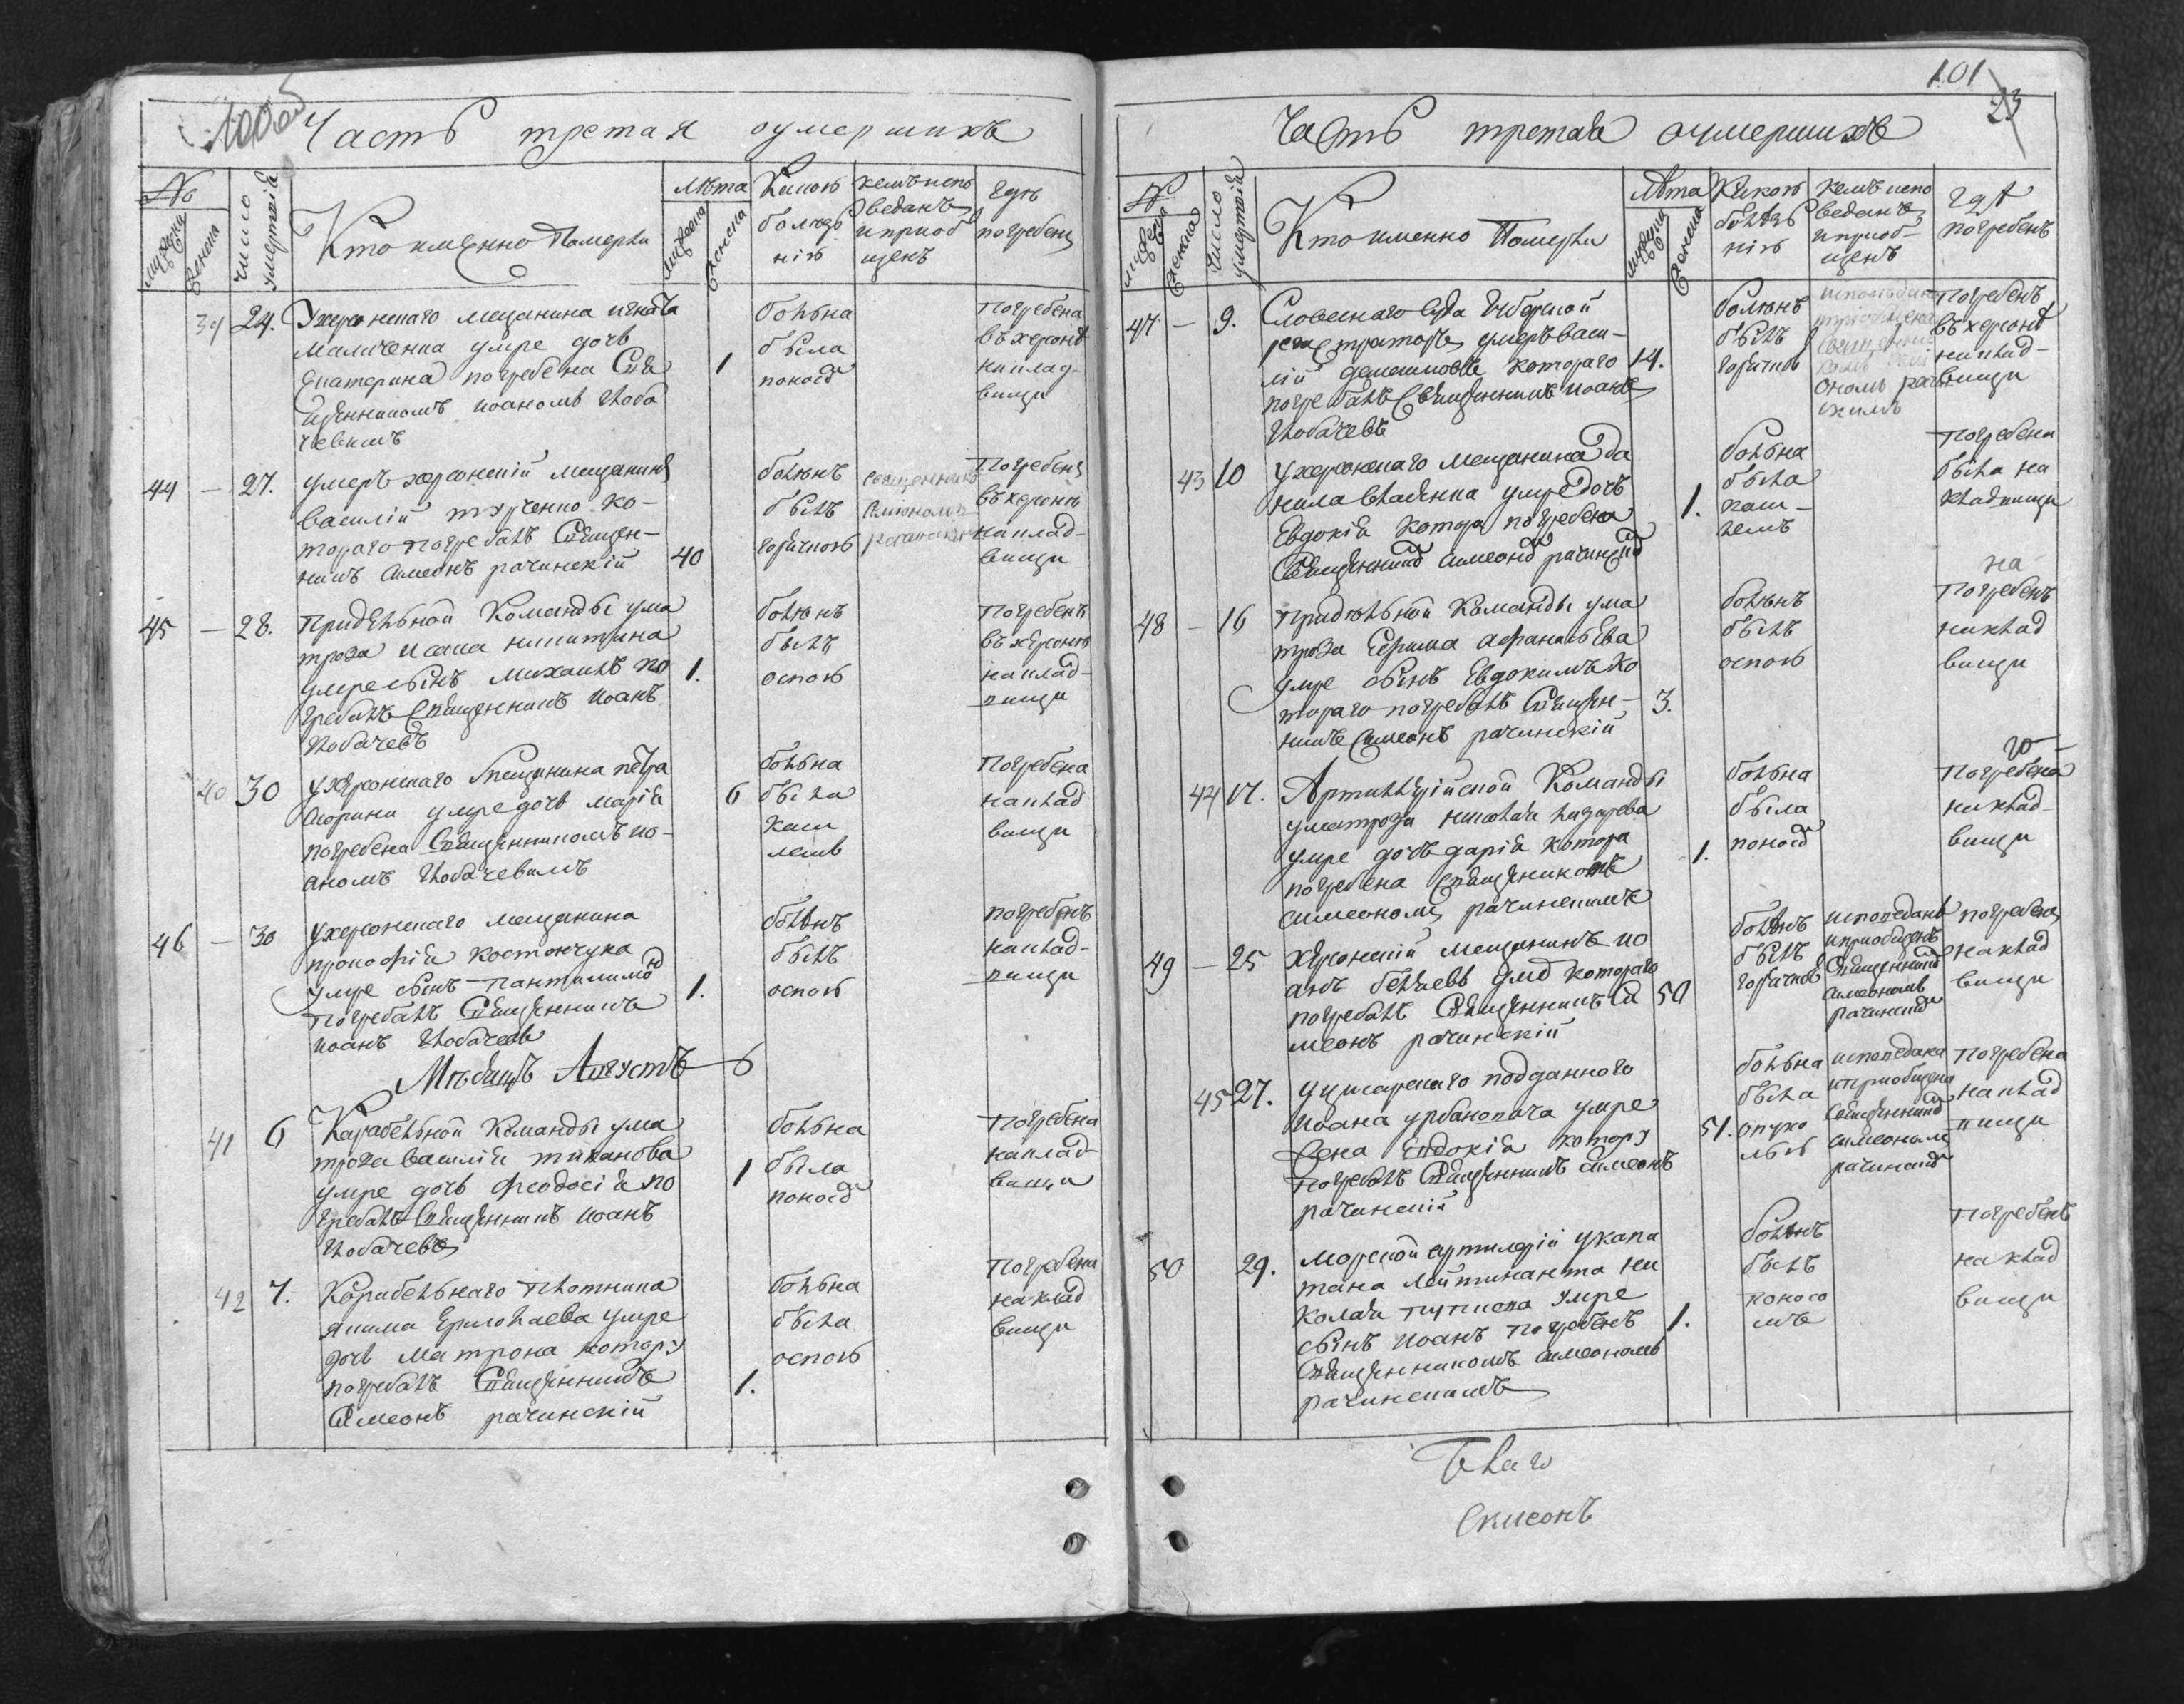 100об
Часть третая оумершихъ
№
мужеска
женска
число умертвій
Кто имянно Померли
Лѣта
мужеска
женска
Какою болезнію
кемъ исповеданъ и приобщенъ
Где погребенъ
39 24. У херсонскаго мещанина игната
Маличенка умре дочь
Екатерина погребена Свя
щенникомъ иоаномъ Глоба
чевимъ
1
больна
была
поносо
Погребена
въ херсонѣ
на клад-
вищи
44 — 27. умеръ херсонскій мещанинъ
василій тарченко ко-
тораго погребалъ Священ-
никъ симеонъ рачинскій
40
больнъ
былъ
горячкою
священникъ
Симеономъ
рачинскимъ
Погребенъ
въ херсонѣ
на клад-
вищи
45 — 28. Придѣльной Команды у ма
троза исака никитина
умре сынъ Михаилъ по
гребалъ Священникъ иоанъ
Глобачевъ
1.
больнъ
былъ
оспою
Погребенъ
въ херсонѣ
на клад-
вищи
40 30 У херсонскаго мещанина петра
умре дочь марія
погребена Священникомъ ио-
аномъ Глобачевимъ
6
больна
была
каш
лемъ
Погребена
на клад
вищи
46 — 30 У херсонскаго мещанина
прокофія костончука
умре сынъ Пантилимо н
Погребалъ Священникъ
иоанъ Глобачевъ
1.
больнъ
былъ
оспою
погребенъ
на клад-
вищи
Мѣсяцъ Августъ
41 6 Карабельной Команды у ма
троза василія тиханова
умре дочь феодосія по
гребалъ Священникъ иоанъ
Глобачевъ
1
больна
была
поносо
Погребена
на клад-
вищи
42 7. Карабельнаго плотника
якима Ермолаева умре
дочь матрона котору
погребалъ Священникъ
Симеонъ рачинскій
1.
больна
была
оспою
Погребена
на клад
вищи
101
23
Часть третая оумершихъ
№
мужеска
женска
Число умертвій
Кто именно Померли
Лѣта
мужеска
женска
Какою болѣзнію
кемъ исповеданъ и приоб-
щенъ
где
погребенъ
47 — 9. Словеснаго суда
умеръ васи-
лій котораго
погребалъ Священникъ иоанъ
Глобачевъ
14.
больнъ
былъ
горячкою
Погребенъ
въ херсонѣ
на клад-
вищи
43 10 У херсонскаго мещанина да
нила умре дочь
Евдокія котора погребена
Священнико симеоно рачинско
1.
больна
была
каш-
лемъ
Погребена
была на
кладвищи
на
48 — 16 Придѣльной Команды у ма
троза Ефима афанасьева
умре сынъ Евдокимъ ко
тораго погребалъ Священ-
никъ Симеонъ рачинскій
3.
больнъ
былъ
оспою
Погребенъ
на клад
вищи
44 17. Артиллерійской Команды
у матроза николая лазарева
умре дочь дарія котора
погребена Священикомъ
симеономъ рачинскимъ
1.
больна
была
поносо
Погребена
на клад-
вищи
49 — 25 Херсонскій мещанинъ ио
анъ умре котораго
погребалъ Священникъ Си
меонъ рачинскій
50
больнъ
былъ
горячкою
исповеданъ
и приобщенъ
Священнико
симеономъ
рачинско
погребенъ
на клад
вищи
45 27. У цисарскаго подданного
иоана урбановича умре
жена Евдокія котору
погребалъ Священникъ симеонъ
рачинскій
51.
больна
была
опухо
лью
исповедана
и приобщена
Священнико
симеономъ
рачинско
Погребена
на клад
вищи
50 29. Морской артилеріи у капи
тана Лейтинанта ни
колая умре
сынъ иоанъ погребенъ
Священникомъ симеономъ
рачинскимъ
1.
больнъ
былъ
поносо
мъ
Погребенъ
на клад
вищи